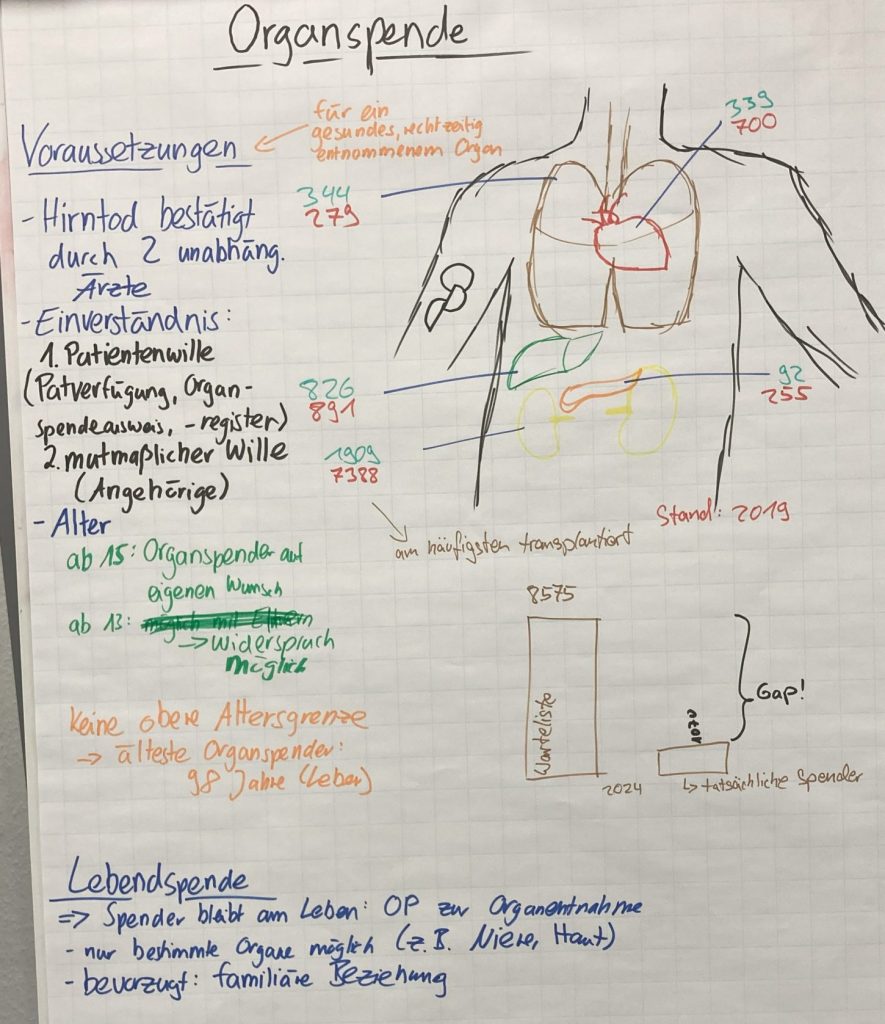 Organspende
Voraussetzungen
für ein
gesundes, rechtzeitig
entnommenem Organ
- Hirntod bestätigt
durch 2 unabhäng.
Ärzte
- Einverständnis:
1. Patientenwille
(Patverfügung, Organ-
spendeausweis, -register)
2. mutmaßlicher Wille
(Angehörige)
- Alter
ab 15: Organspender auf
eigenen Wunsch
ab 13: möglich mit Eltern
→ Widerspruch
möglich
Keine obere Altersgrenze
→ älteste Organspender:
98 Jahre (Leber)
339
700
344
279
826
891
92
255
1909
7388
Stand: 2019
am häufigsten transplantiert
8575
Warteliste
Gap!
2024
↳ tatsächliche Spender
Lebendspende
=> Spender bleibt am Leben: OP zur Organentnahme
- nur bestimmte Organe möglich (z.B. Niere, Haut)
- bevorzugt: familiäre Beziehung